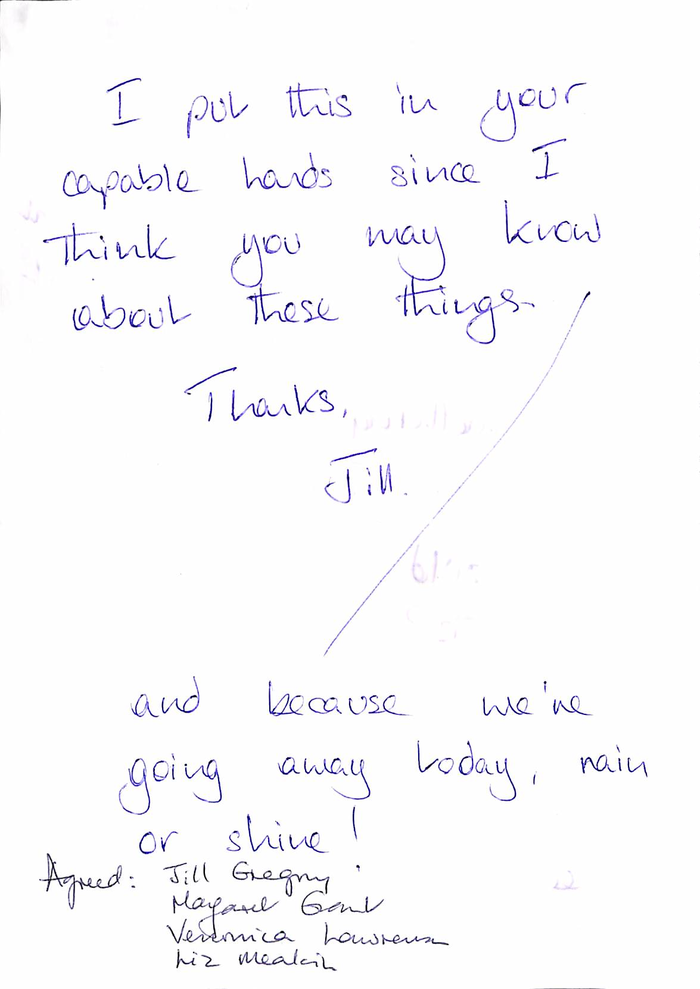 I put this in your
capable hands since I
think you may know
about these things.
Thanks,
Jill.
and because we're
going away today, rain
or shine!
Agreed: Jill Gregory
Margaret Gant
Veronica Lawrence
Liz Meakin